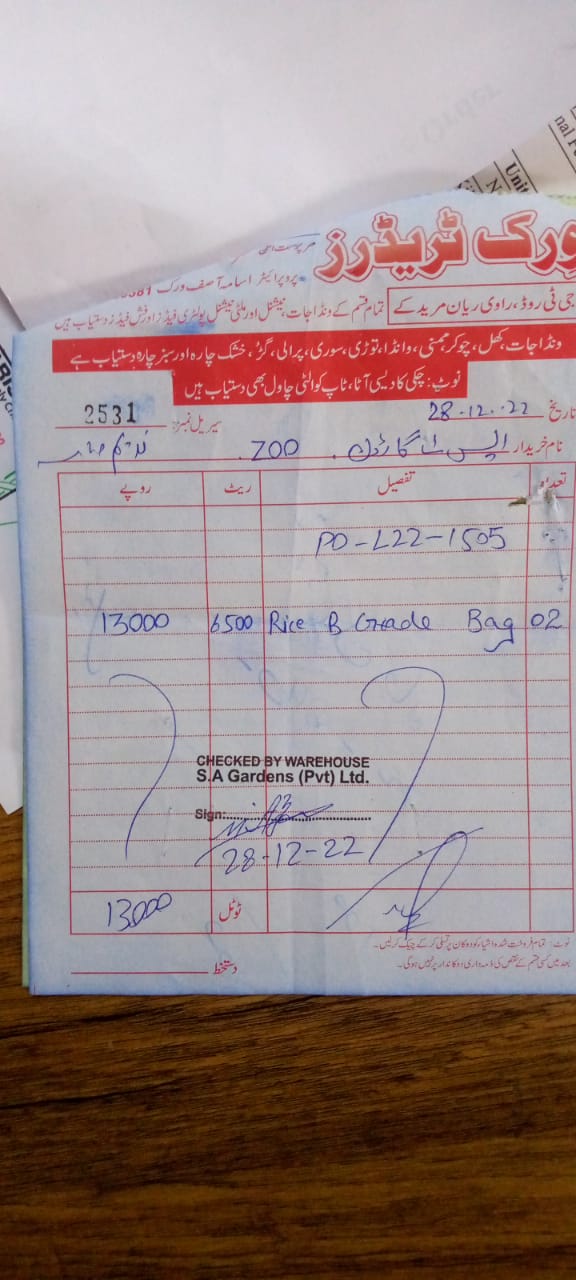 ورک ٹریڈرز
سرپرست اعلیٰ
پروپرائیٹر اسامہ آصف ورک
جی ٹی روڈ، راوی ریان مرید کے
تمام قسم کے ونڈا جات، نیشنل اور ملٹی نیشنل پولٹری فیڈز اور فش فیڈز دستیاب ہیں
ونڈا جات، کھل، چوکر، ممنی، وانڈا، توڑی، سوری، پرالی، گڑ، خشک چارہ اور سبز چارہ دستیاب ہے
نوٹ: چکی کا دیسی آٹا، ٹاپ کوالٹی چاول بھی دستیاب ہیں
تاریخ 28-12-22 سیریل نمبر: 2531
نام خریدار ایس اے گارڈن. ZOO.
تعداد تفصیل ریٹ روپے
PO-L22-1505
02 Rice B Grade Bag 6500 13000
CHECKED BY WAREHOUSE
S.A Gardens (Pvt) Ltd.
Sign:
28-12-22
ٹوٹل 13000
نوٹ: تمام فروخت شدہ اشیاء کو دوکان پر تسلی کر کے چیک کر لیں۔
بعد میں کسی قسم کے نقص کی ذمہ داری دوکاندار پر نہیں ہو گی۔
دستخط
Order
nal
Unit